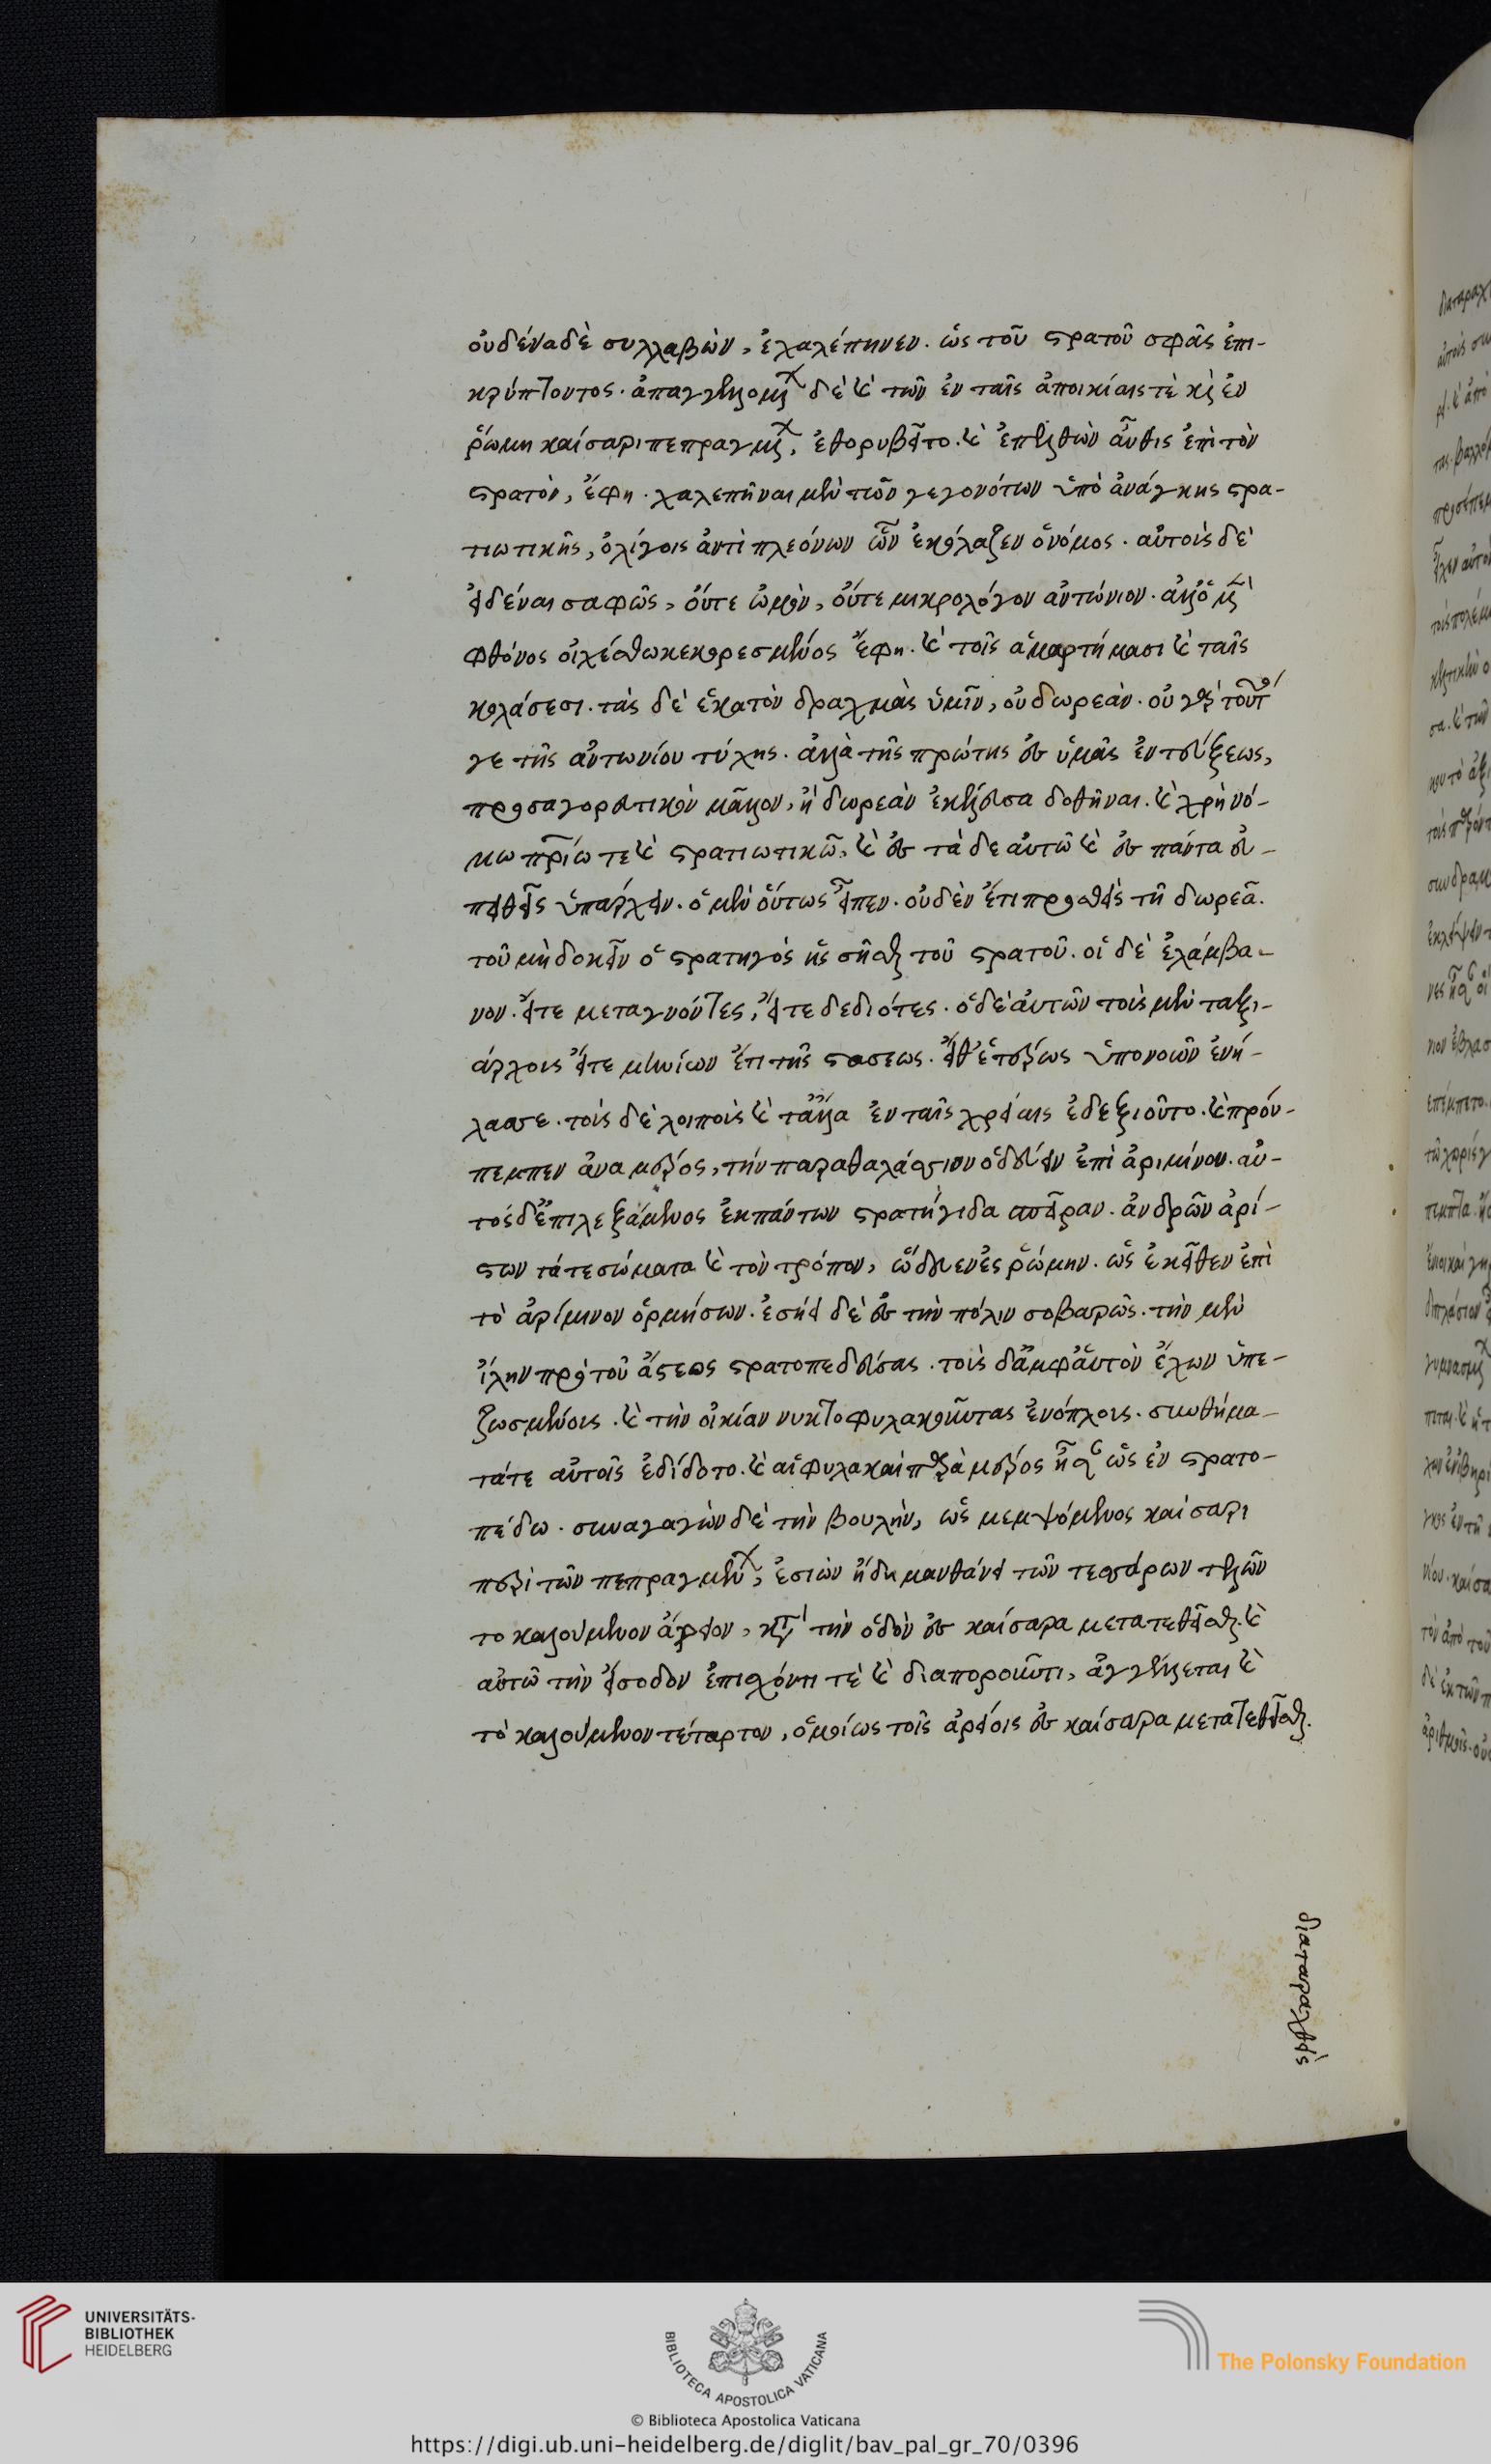 οὐδένα δὲ συλλαβὼν, ἐχαλέπηνεν. ὡς τοῦ στρατοῦ σφᾶς ἐπι-
κρύπτοντος. ἀπαγγελλομένων δὲ καὶ τῶν ἐν ταῖς ἀποικίαις τὲ καὶ ἐν
ῥώμη καίσαρι πεπραγμένων, ἐθορυβεῖτο. καὶ ἐπελθὼν αὖθις ἐπὶ τὸν
στρατὸν, ἔφη. χαλεπῆναι μὲν τῶν γεγονότων ὑπὸ ἀνάγκης στρα-
τιωτικῆς, ὀλίγοις ἀντὶ πλεόνων ὧν ἐκόλαζεν ὁ νόμος. αὐτοὶς δὲ
εἰδέναι σαφῶς, οὔτε ὠμὸν, οὔτε μικρολόγον ἀντώνιον. ἀλλ' ὁ μὲν
φθόνος οἰχέσθω κεκορεσμένος ἔφη. καὶ τοῖς ἁμαρτήμασι καὶ ταῖς
κολάσεσι. τὰς δὲ ἑκατὸν δραχμὰς ὑμῖν, οὐ δωρεὰν. οὐ γὰρ τοῦτό
γε τῆς ἀντωνίου τύχης. ἀλλὰ τῆς πρώτης ἐς ὑμᾶς ἐντεύξεως,
προσαγορευτικὸν μᾶλλον, ἢ δωρεὰν ἐκέλευσα δοθῆναι. καὶ χρὴ νό-
μω πατρίω τε καὶ στρατιωτικῶ, καὶ ἐς τὰ δε αὐτῶ καὶ ἐς πάντα εὐ-
πειθεῖς ὑπάρχειν. ὁ μὲν οὕτως εἶπεν. οὐδὲν ἔτι προσθεὶς τῆ δωρεᾶ.
τοῦ μὴ δοκεῖν ὁ στρατηγὸς ἡσσῆσθαι τοῦ στρατοῦ. οἱ δὲ ἐλάμβα-
νον. εἴτε μεταγνόντες, εἴτε δεδιότες. ὁ δὲ αὐτῶν τοὶς μὲν ταξι-
άρχοις εἴτε μηνίων ἔτι τῆς στασεως. εἴθ' ἑτέρως ὑπονοῶν ἐνή-
λασσε. τοὶς δὲ λοιποὶς καὶ τἆλλα ἐν ταῖς χρείαις ἐδεξιοῦτο. καὶ πρού-
πεμπεν ἀνα μέρος, τὴν παραθαλάσσιον ὁδεύειν ἐπὶ ἀριμίνου. αὐ-
τὸς δ' ἐπιλεξάμενος ἐκ πάντων στρατήγιδα σπεῖραν. ἀνδρῶν ἀρί-
στων τά τε σώματα καὶ τὸν τρόπον, ὥδευεν ἐς ῥώμην. ὡς ἐκεῖθεν ἐπὶ
τὸ ἀρίμινον ὁρμήσων. ἐσήει δὲ ἐς τὴν πόλιν σοβαρῶς. τὴν μὲν
ἴλην πρὸ τοῦ ἄστεως στρατοπεδεύσας. τοὶς δ' ἀμφ' αὑτὸν ἔχων ὑπε-
ζωσμένοις. καὶ τὴν οἰκίαν νυκτοφυλακοῦντας ἐνόπλοις. συνθήμα-
τά τε αὐτοῖς ἐδίδοτο. καὶ αἱ φυλακαὶ παρὰ μέρος ἦσαν ὡς ἐν στρατο-
πέδω. συναγαγὼν δὲ τὴν βουλὴν, ὡς μεμψόμενος καίσαρι
περὶ τῶν πεπραγμένων, ἐσιὼν ἤδη μανθάνει τῶν τεσσάρων τελῶν
το καλούμενον ἄρειον, κατὰ τὴν ὁδὸν ἐς καίσαρα μετατεθεῖσθαι. καὶ
αὐτῶ τὴν εἴσοδον ἐπισχόντι τὲ καὶ διαποροῦντι, ἀγγέλλεται καὶ
τὸ καλούμενον τέταρτον, ὁμοίως τοῖς ἀρείοις ἐς καίσαρα μετατεθεῖσθαι.
διαταραχθεὶς
UNIVERSITÄTS-
BIBLIOTHEK
HEIDELBERG
BIBLIOTECA APOSTOLICA VATICANA
The Polonsky Foundation
© Biblioteca Apostolica Vaticana
https://digi.ub.uni-heidelberg.de/diglit/bav_pal_gr_70/0396